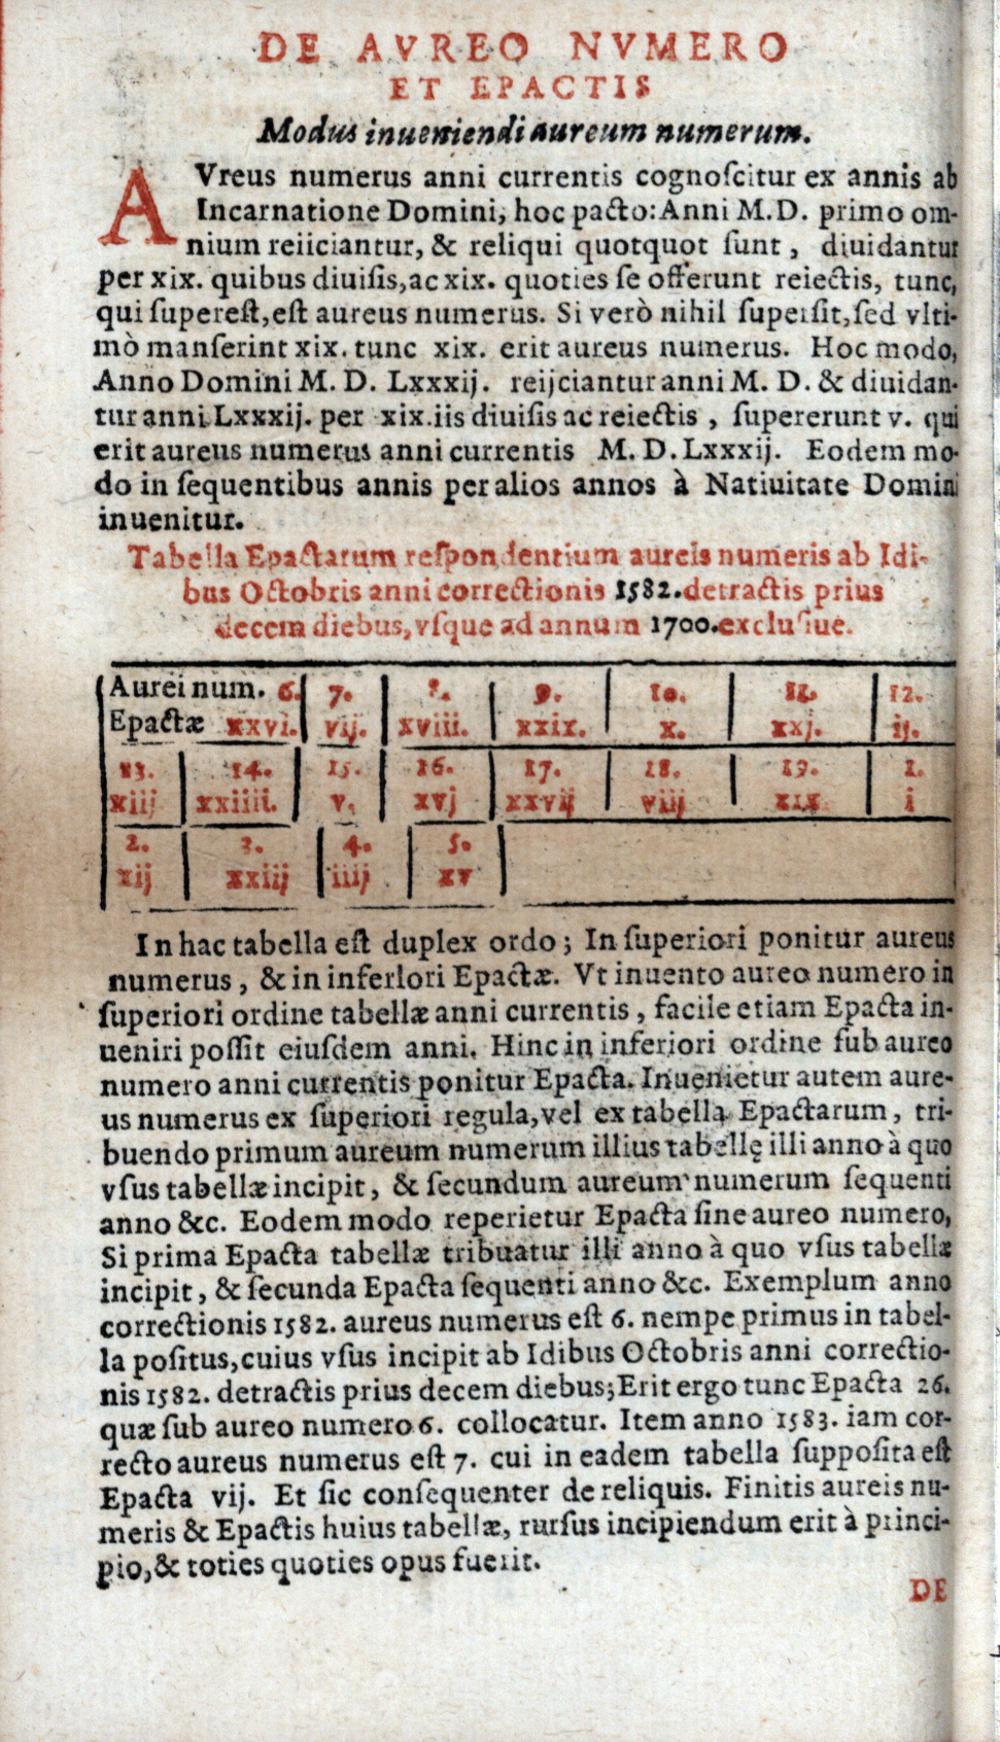 DE AVREO NVMERO
ET EPACTIS
Modus inueniendi aureum numerum.
AVreus numerus anni currentis cognoſcitur ex annis ab
Incarnatione Domini, hoc pacto: Anni M.D. primo om-
nium reiiciantur, & reliqui quotquot ſunt, diuidantur
per xix. quibus diuiſis, ac xix. quoties ſe offerunt reiectis, tunc,
qui ſupereſt, eſt aureus numerus. Si verò nihil ſuperſit, ſed vlti-
mò manſerint xix. tunc xix. erit aureus numerus. Hoc modo,
Anno Domini M. D. Lxxxij. reijciantur anni M. D. & diuidan-
tur anni Lxxxij. per xix. iis diuiſis ac reiectis, ſupererunt v. qui
erit aureus numerus anni currentis M. D. Lxxxij. Eodem mo-
do in ſequentibus annis per alios annos à Natiuitate Domini
inuenitur.
Tabella Epactarum reſpondentium aureis numeris ab Idi-
bus Octobris anni correctionis 1582. detractis prius
decem diebus, vſque ad annum 1700. excluſiue.
Aurei num. 6. 7. 8. 9. 10. 11. 12.
Epactæ xxvi. vij. xviii. xxix. x. xxj. ij.
13. 14. 15. 16. 17. 18. 19. 1.
xiij xxiiii. v. xvj xxvij viij xix i
2. 3. 4. 5.
xij xxiij iiij xv
In hac tabella eſt duplex ordo; In ſuperiori ponitur aureus
numerus, & in inferiori Epactæ. Vt inuento aureo numero in
ſuperiori ordine tabellæ anni currentis, facile etiam Epacta in-
ueniri poſſit eiuſdem anni. Hinc in inferiori ordine ſub aureo
numero anni currentis ponitur Epacta. Inuenietur autem aure-
us numerus ex ſuperiori regula, vel ex tabella Epactarum, tri-
buendo primum aureum numerum illius tabellę illi anno à quo
vſus tabellæ incipit, & ſecundum aureum numerum ſequenti
anno &c. Eodem modo reperietur Epacta ſine aureo numero,
Si prima Epacta tabellæ tribuatur illi anno à quo vſus tabellæ
incipit, & ſecunda Epacta ſequenti anno &c. Exemplum anno
correctionis 1582. aureus numerus eſt 6. nempe primus in tabel-
la poſitus, cuius vſus incipit ab Idibus Octobris anni correctio-
nis 1582. detractis prius decem diebus; Erit ergo tunc Epacta 26.
quæ ſub aureo numero 6. collocatur. Item anno 1583. iam cor-
recto aureus numerus eſt 7. cui in eadem tabella ſuppoſita eſt
Epacta vij. Et ſic conſequenter de reliquis. Finitis aureis nu-
meris & Epactis huius tabellæ, rurſus incipiendum erit à princi-
pio, & toties quoties opus fuerit.
DE